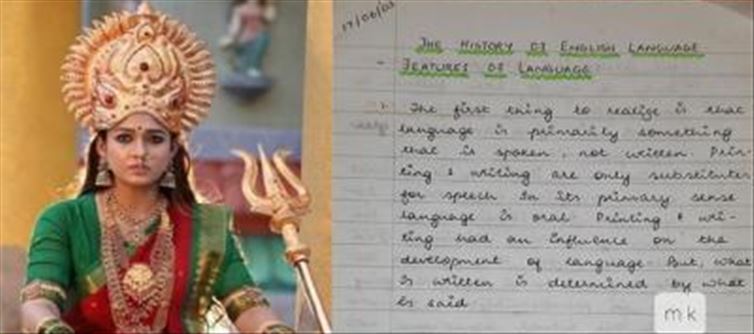 17/06/03
THE HISTORY OF ENGLISH LANGUAGE
FEATURES OF LANGUAGE
The first thing to realize is that
language is primarily something
that is spoken, not written. Prin-
ting & writing are only substitutes
for speech. In its primary sense
language is oral. Printing & wri-
ting had an influence on the
development of language. But, what
is written is determined by what
is said
mk